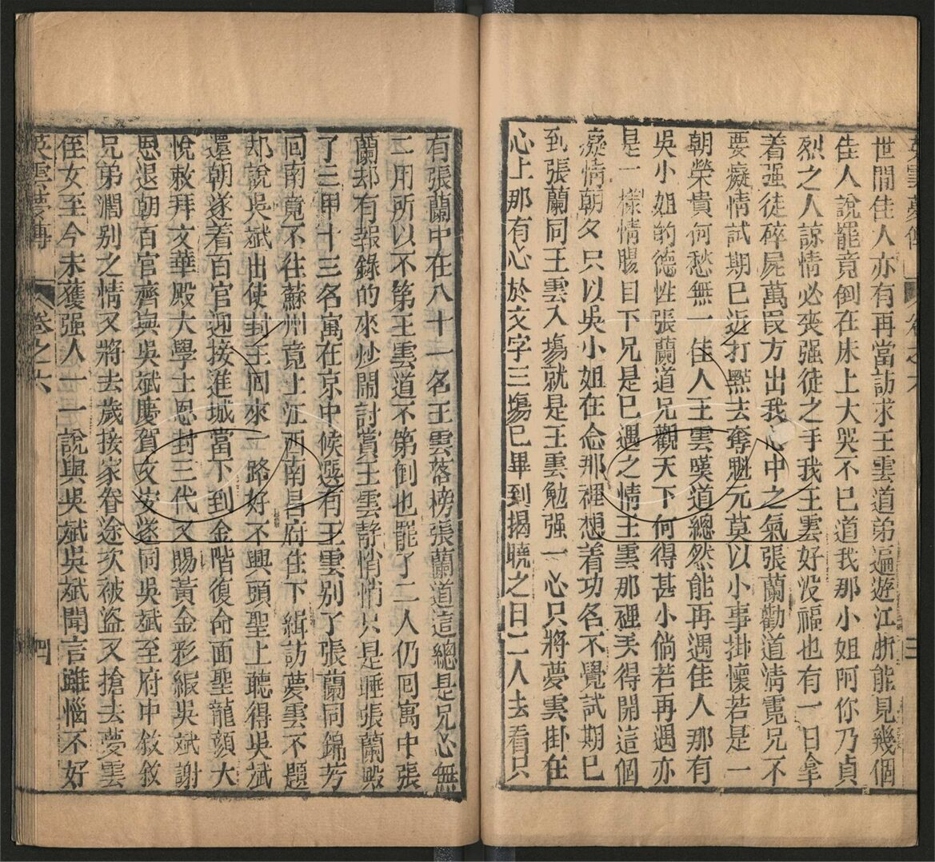 世間佳人亦有再當訪求王雲道弟遍遊江浙能見幾個
佳人說罷竟倒在床上大哭不已道我那小姐阿你乃貞
烈之人諒情必喪强徒之手我王雲好没福也有一日拿
着强徒碎屍萬叚方出我心中之氣張蘭勸道清霓兄不
要癡情試期已近打㸃去奪魁元莫以小事掛懷若是一
朝榮貴何愁無一佳人王雲嘆道總然能再遇佳人那有
吳小姐的德性張蘭道兄觀天下何得甚小倘若再遇亦
是一樣情腸目下兄是已遇之情王雲那裡丟得開這個
癡情朝夕只以吳小姐在念那裡想着功名不覺試期已
到張蘭同王雲入塲就是王雲勉强一心只將夢雲掛在
心上那有心於文字三塲已畢到揭曉之日二人去看只
英雲夢傳 卷之六 三
有張蘭中在八十一名王雲落榜張蘭道這總是兄心無
二用所以不第王雲道不第倒也罷了二人仍回寓中張
蘭却有報錄的來炒閙討賞王雲靜悄悄只是睡張蘭殿
了三甲十三名寓在京中候選有王雲别了張蘭同錦芳
回南竟不往蘇州竟上江西南昌府住下緝訪夢雲不題
却說吳斌出使封王回來一路好不興頭聖上聽得吳斌
還朝遂着百官迎接進城當下到金階復命面聖龍顔大
悅敕拜文華殿大學士恩封三代又賜黃金彩緞吳斌謝
恩退朝百官齊與吳斌慶賀文安遂同吳斌至府中敘敘
兄弟濶别之情又將去歲接家眷途次被盗又搶去夢雲
侄女至今未獲强人一一說與吳斌吳斌聞言雖惱不好
英雲夢傳 卷之六 四